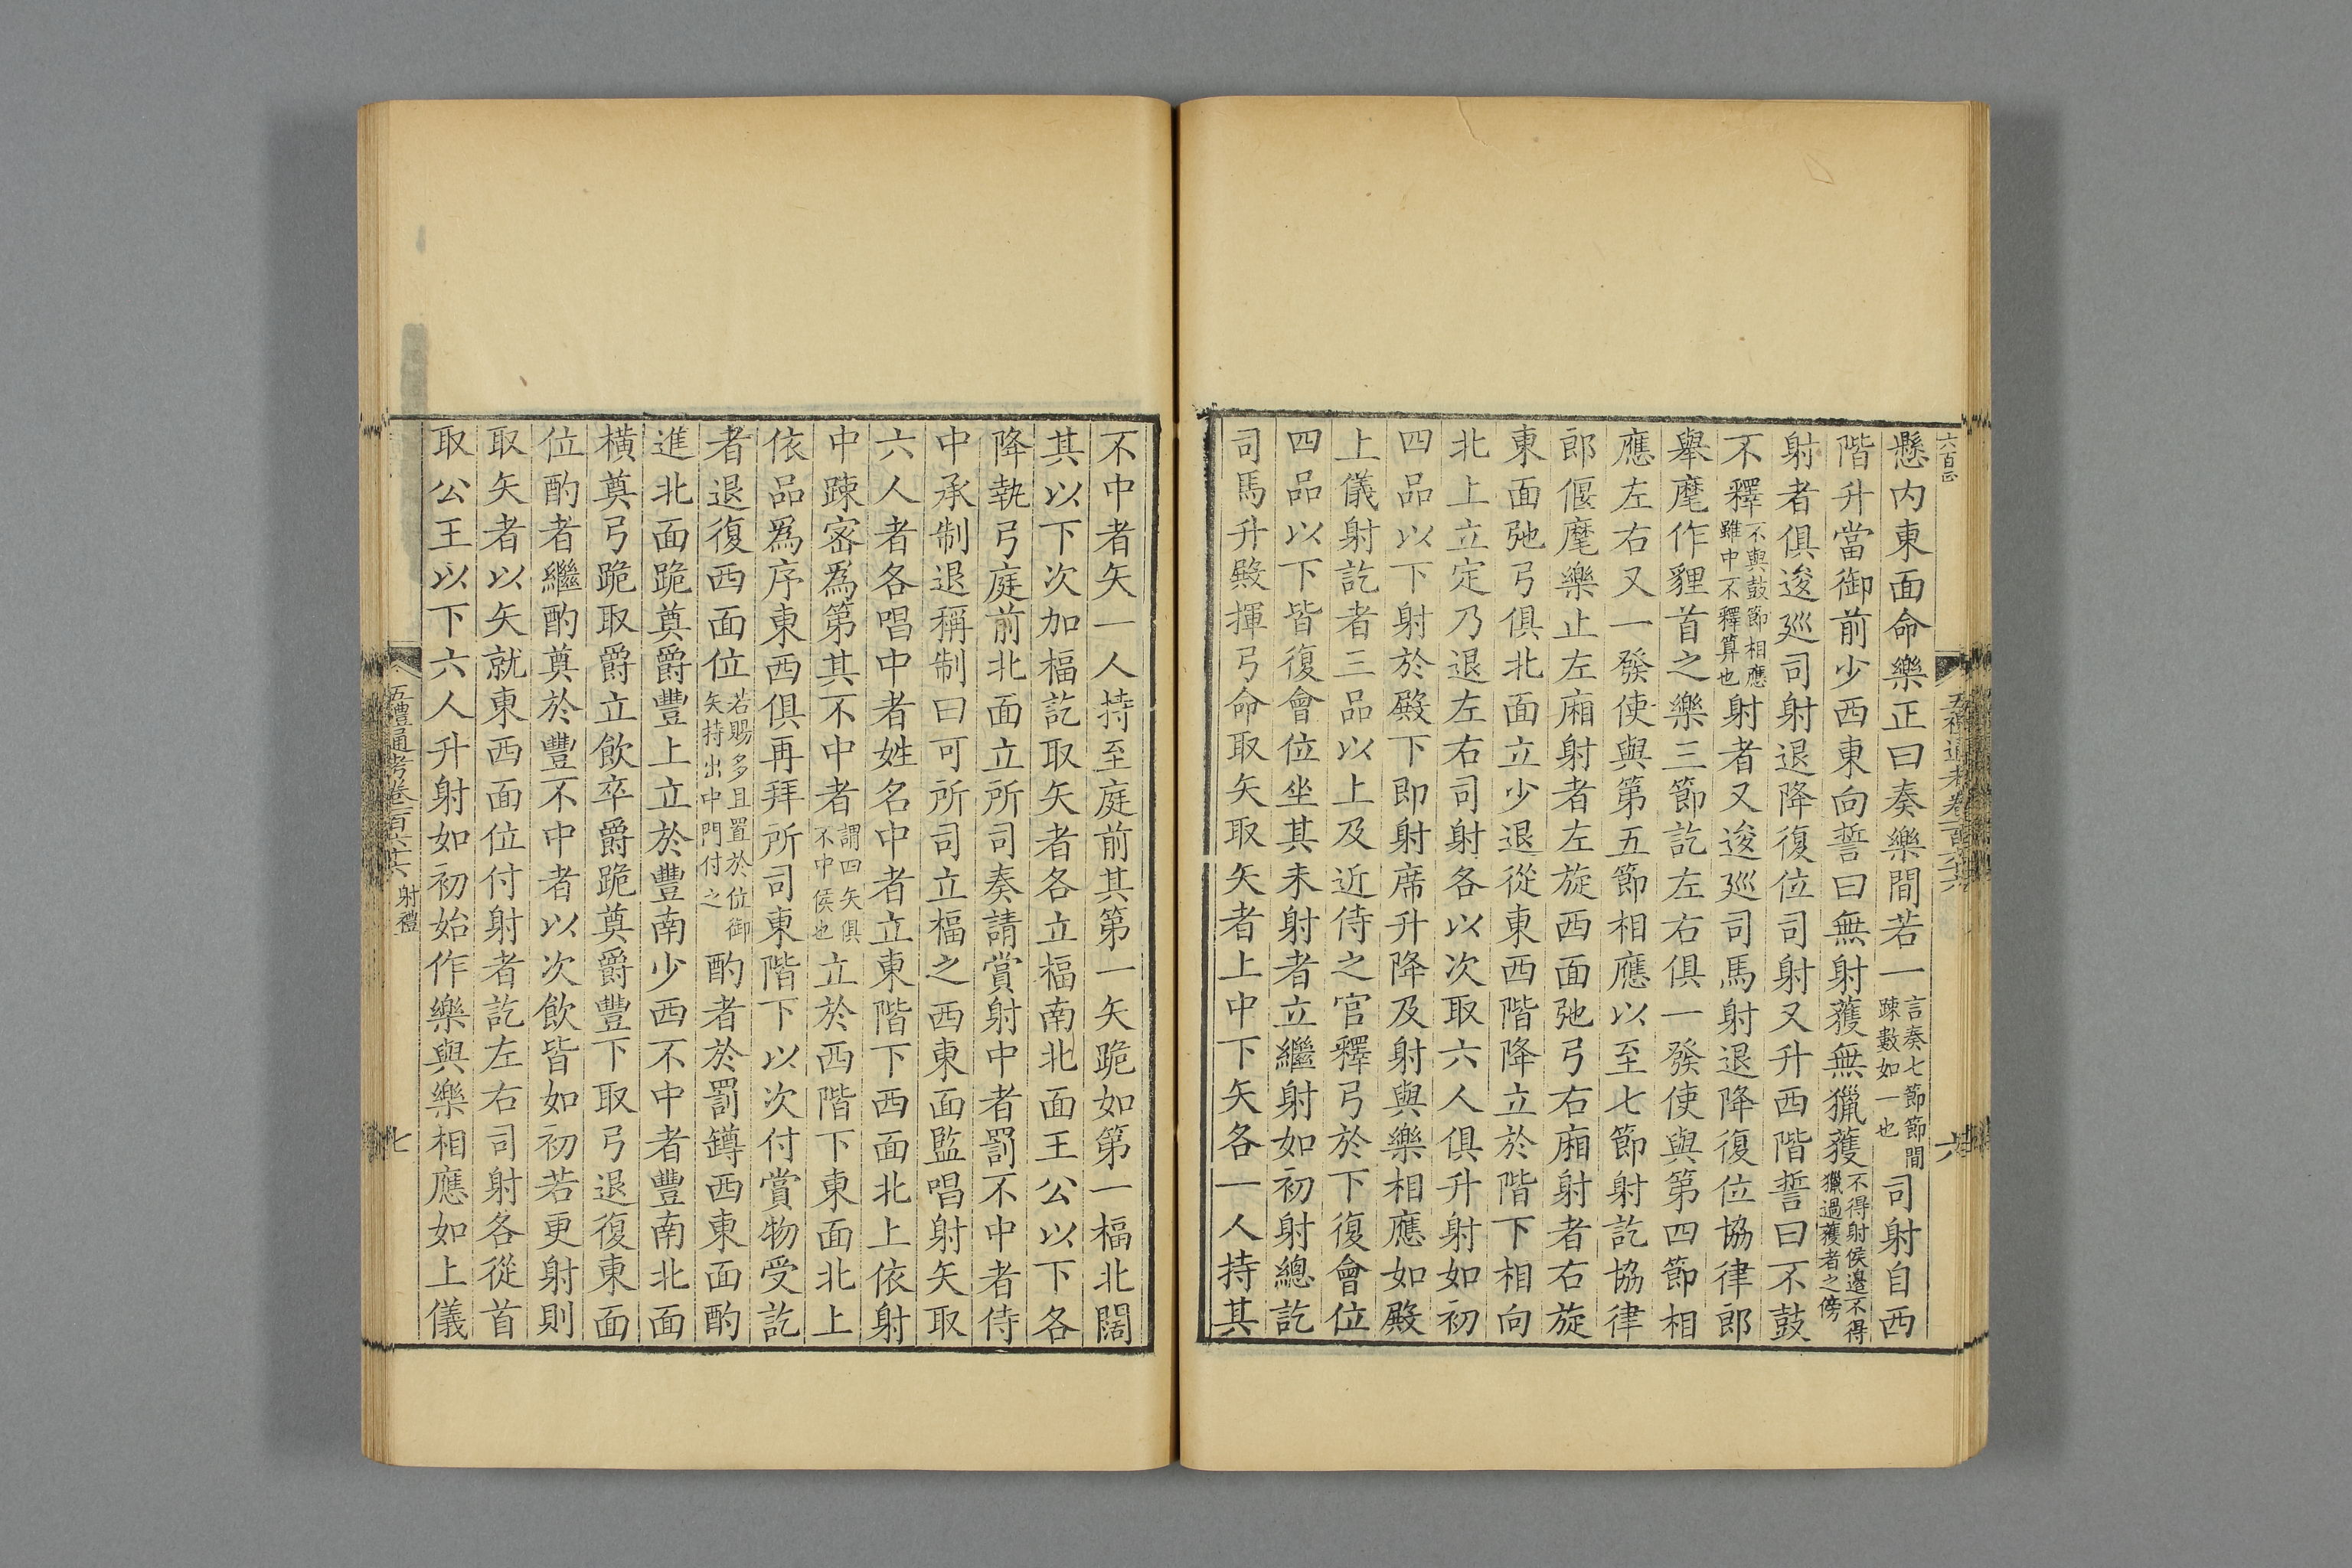 懸内東面命樂正曰奏樂間若一言奏七節節間踈數如一也司射自西
階升當御前少西東向誓曰無射蒦無獵蒦不得射侯邊不得獵過蒦者之傍
射者俱逡廵司射退降復位司射又升西階誓曰不鼓
不釋不與鼓節相應雖中不釋算也射者又逡廵司馬射退降復位協律郎
舉麾作貍首之樂三節訖左右俱一發使與第四節相
應左右又一發使與第五節相應以至七節射訖協律
郎偃麾樂止左廂射者左旋西面弛弓右廂射者右旋
東面弛弓俱北面立少退從東西階降立於階下相向
北上立定乃退左右司射各以次取六人俱升射如初
四品以下射於殿下即射席升降及射與樂相應如殿
上儀射訖者三品以上及近侍之官釋弓於下復會位
四品以下皆復會位坐其未射者立繼射如初射總訖
司馬升殿揮弓命取矢取矢者上中下矢各一人持其
不中者矢一人持至庭前其第一矢跪如第一楅北闊
其以下次加楅訖取矢者各立楅南北面王公以下各
降執弓庭前北面立所司奏請賞射中者罰不中者侍
中承制退稱制曰可所司立楅之西東面監唱射矢取
六人者各唱中者姓名中者立東階下西面北上依射
中踈密爲第其不中者謂四矢俱不中侯也立於西階下東面北上
依品爲序東西俱再拜所司東階下以次付賞物受訖
者退復西面位若賜多且置於位御矢持出中門付之酌者於罰罇西東面酌
進北面跪奠爵豐上立於豐南少西不中者豐南北面
橫奠弓跪取爵立飲卒爵跪奠爵豐下取弓退復東面
位酌者繼酌奠於豐不中者以次飲皆如初若更射則
取矢者以矢就東西面位付射者訖左右司射各從首
取公王以下六人升射如初始作樂與樂相應如上儀
五禮通考卷一百六十六 射禮 七